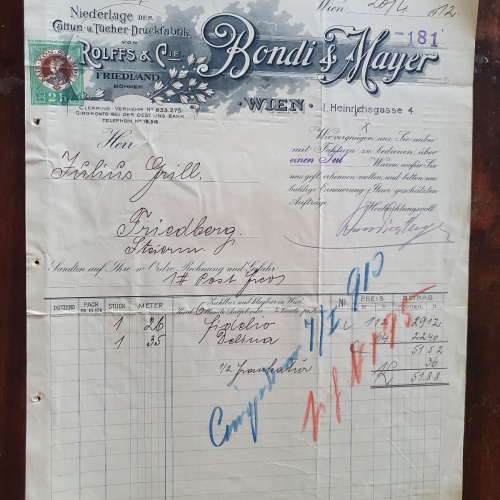 Wien, 20/4 1912.
Niederlage DER
Cattun u. Tücher-Druckfabrik
VON
ROLFFS & CIE
FRIEDLAND
BÖHMEN
Bondi & Mayer
-181
WIEN
I. Heinrichsgasse 4.
CLEARING-VERKEHR No 833.275.
GIROKONTO BEI DER OEST. UNG. BANK.
TELEPHON No 18.516.
Herr
Julius Grill.
Friedberg.
Steierm.
Wir vergnügen uns, Sie anbei
mit Faktura zu bedienen, über
einen Teil Waren, wofür Sie
uns gefl. erkennen wollen, und bitten um
baldige Erneuerung Ihrer geschätzten
Aufträge
Hochachtungsvoll.
Sandten auf Ihre w. Ordre, Rechnung und Gefahr
1 # Post
DUTZEND PACK STÜCK METER Zahlbar und klagbar in Wien No PREIS BETRAG
1 26 Fidelio 112 2912
1 35 64 2240
5152
1/2 36
K 5188
7/I 910